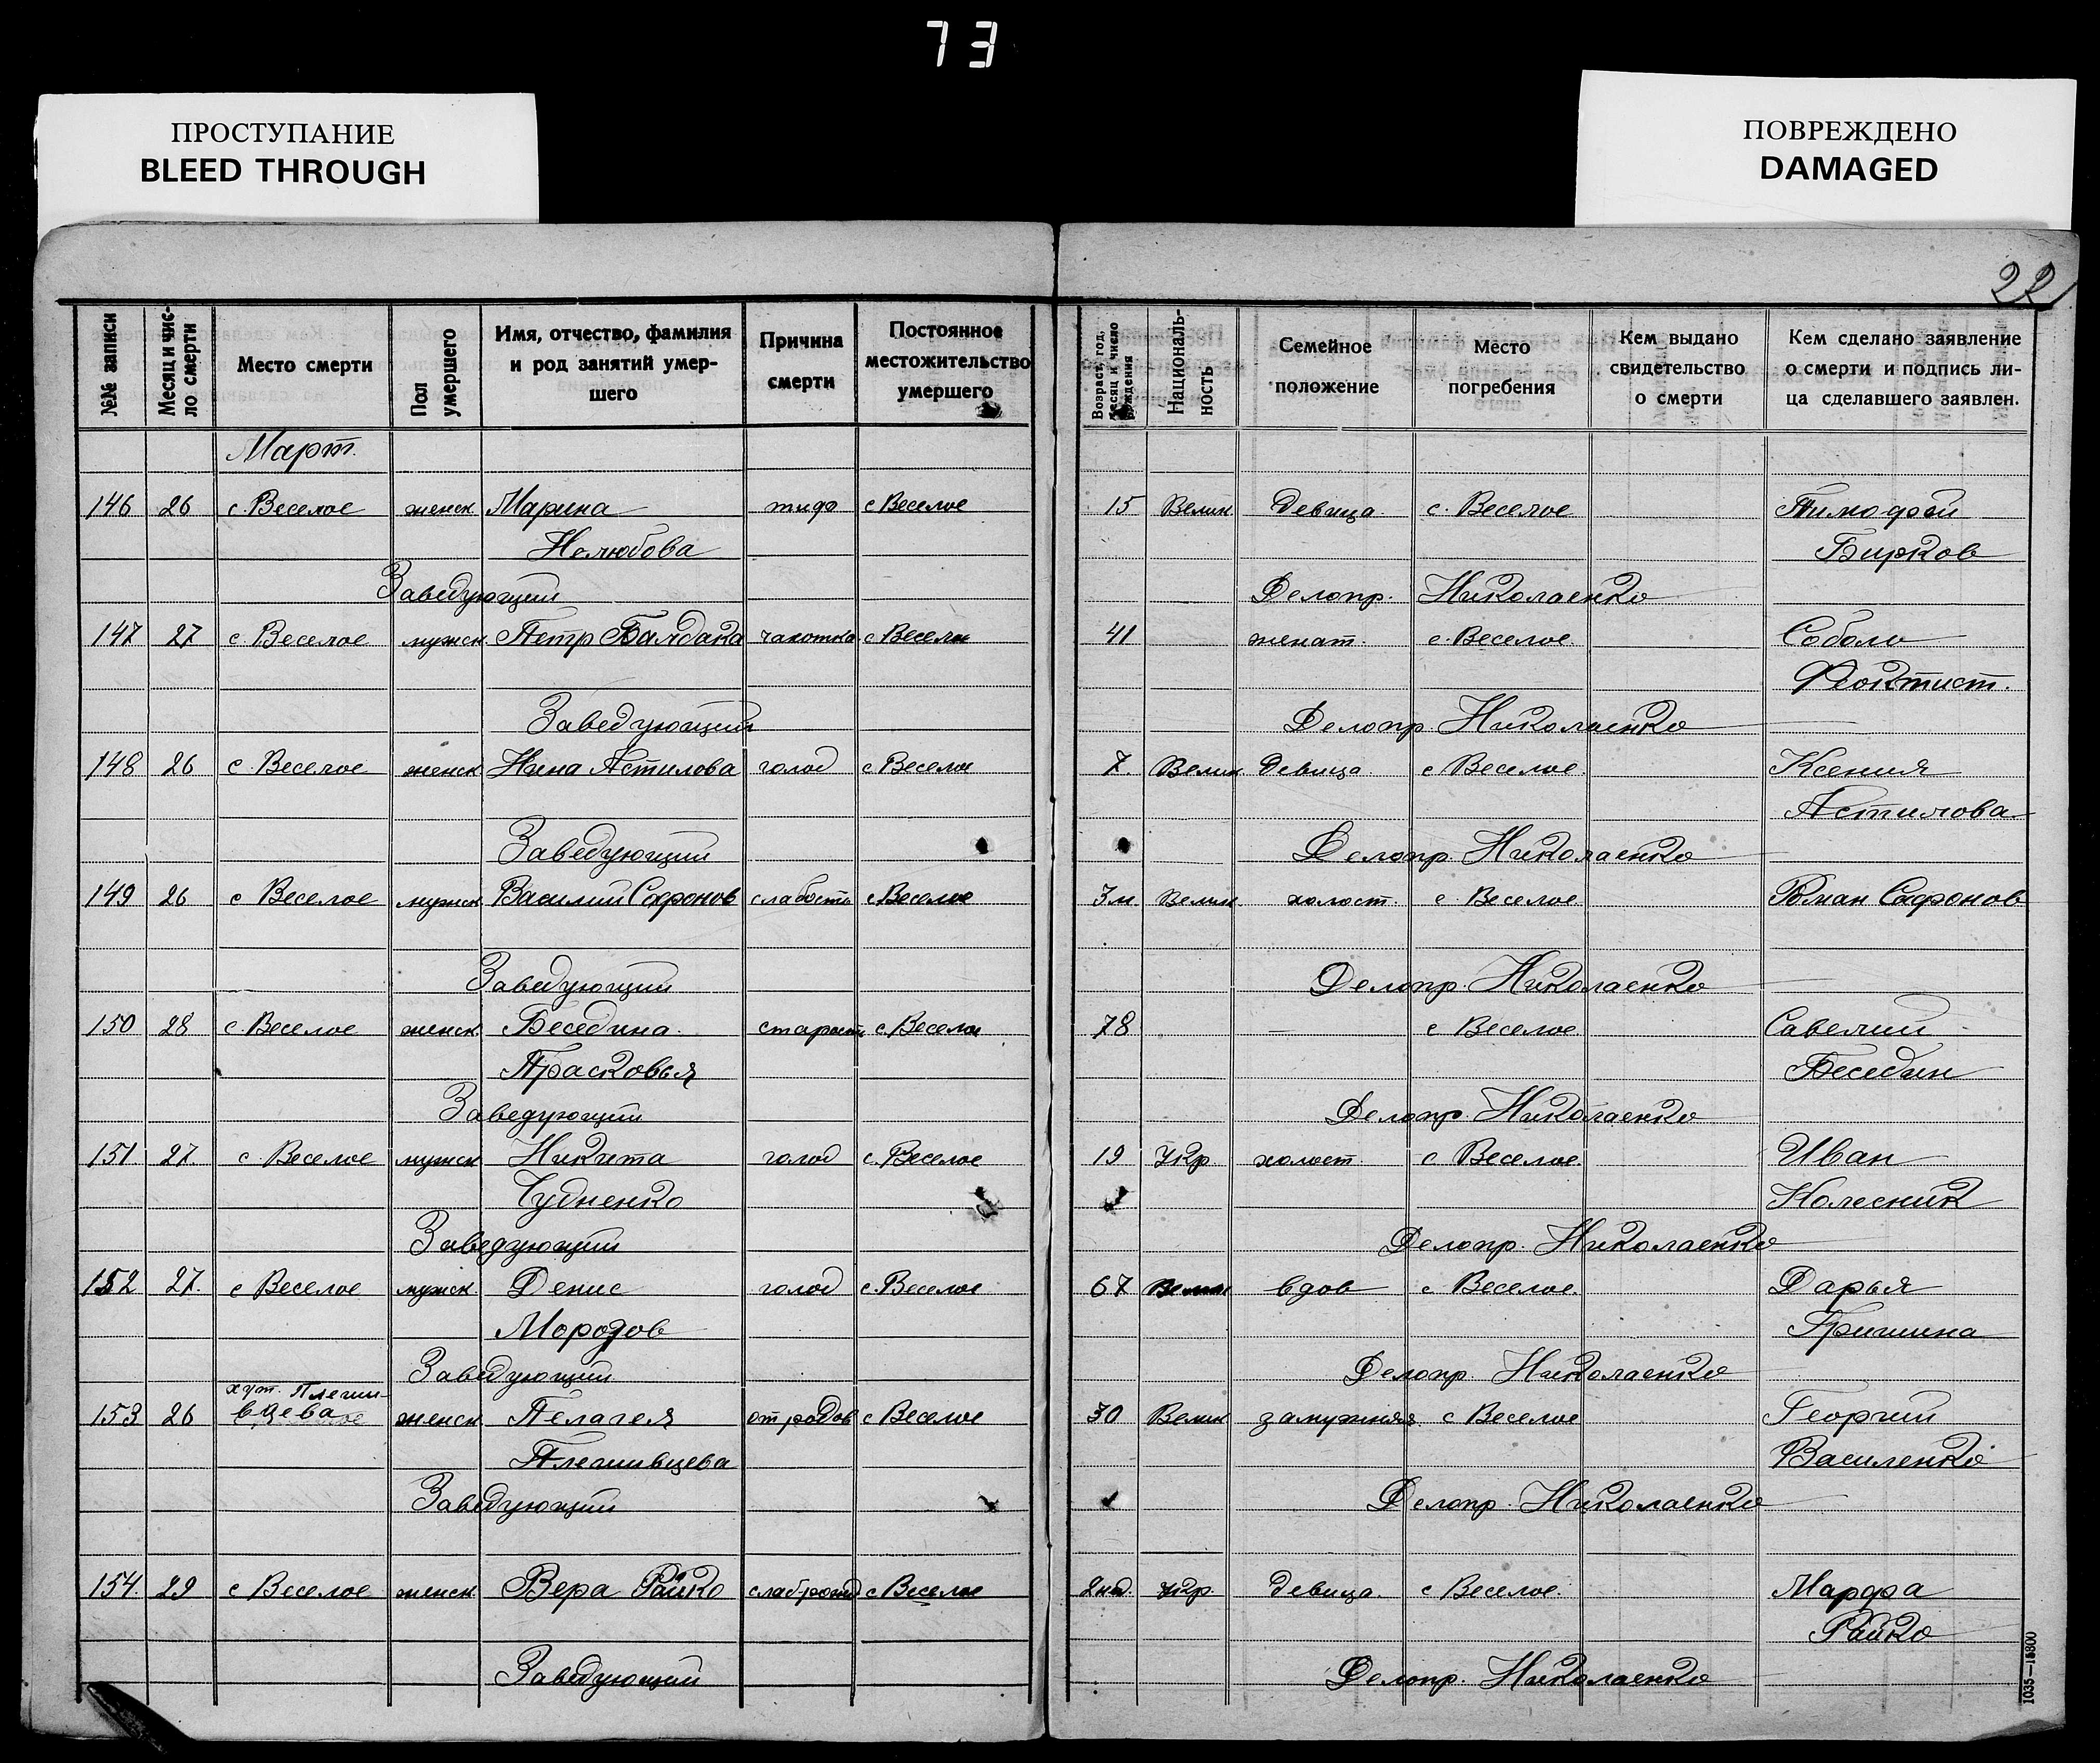 73
ПРОСТУПАНИЕ
BLEED THROUGH
ПОВРЕЖДЕНО
DAMAGED
22
№№ записи
Месяц и число смерти
Место смерти
Пол умершего
Имя, отчество, фамилия
и род занятий умер-
шего
Причина
смерти
Постоянное
местожительство
умершего
Возраст, год,
месяц и число
рождения
Националь-
ность
Семейное
положение
Место
погребения
Кем выдано
свидетельство
о смерти
Кем сделано заявление
о смерти и подпись ли-
ца сделавшего заявлен.
Март.
146 26 с Веселое женск Марина тиф с Веселое 15 Велик Девица с. Веселое Тимофей
Нелюбова Бирков
Заведующий Делопр. Николаенко
147 27 с. Веселое мужск. Петр Балдака чахотка с Веселое 41 женат. с. Веселое Соболь
Феоктист.
Заведующий Делопр. Николаенко
148 26 с. Веселое женск Нина Астилова голод с Веселое 7. Велик Девица с Веселое Ксения
Астилова
Заведующий Делопр. Николаенко
149 26 с Веселое мужск Василий Сафонов слабость с Веселое 3м. Велик холост. с Веселое Роман Сафонов
Заведующий Делопр. Николаенко
150 28 с. Веселое женск. Беседина старость с. Веселое 78 — с Веселое Савелий
Прасковья Беседин
Заведующий Делопр. Николаенко
151. 27. с. Веселое мужск Никита голод с. Веселое 19 Укр. холост. с Веселое Иван
Чудненко Колесник
Заведующий Делопр. Николаенко
152 27. с Веселое мужск. Денис голод с. Веселое 67 Велик вдов с Веселое Дарья
Морозов Гришина
Заведующий Делопр. Николаенко
хут. Плешив-
153 26 вцева женск Пелагея от родов с Веселое 30 Велик замужняя с Веселое Георгий
Плешивцева Василенко
Заведующий Делопр. Николаенко
154. 29 с Веселое женск Вера Райко слаб. рожд с Веселое 2нед. Укр Девица. с Веселое. Марфа
Райко
Заведующий Делопр. Николаенко
1035—18800